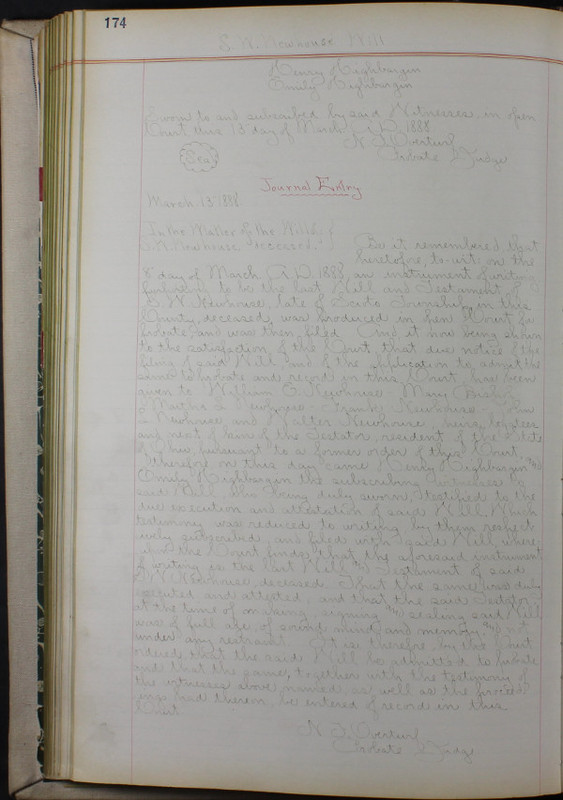 174
S. W. Newhouse Will
Henry Highbargin
Emily Highbargin
Sworn to and subscribed by said Witnesses, in open
Court this 13" day of March A.D. 1888
Seal
Probate Judge
Journal Entry
March 13" 1888.
In the Matter of the Will of
S. W. Newhouse deceased. Be it remembered that
heretofore, to-wit: on the
8" day of March A.D. 1888 an instrument of writing
purporting to be the last Will and Testament of
S. W. Newhouse, late of Scioto Township, in this
County, deceased, was produced in open Court for
probate, and was then filed. And it now being shown
to the satisfaction of the Court, that due notice of the
filing of said Will, and of the application to admit the
same to probate and record in this Court, has been
given to William Newhouse Mary
Martha Newhouse Frank Newhouse
Newhouse and Walter Newhouse being
and next of kin of the Testator, resident of the State
of Ohio, pursuant to a former order of this Court.
Therefore on this day came Henry Highbargin and
Emily Highbargin the subscribing witnesses to
said Will, who being duly sworn, testified to the
due execution and attestation of said Will. Which
testimony was reduced to writing by them respect
ively subscribed, and filed with said Will, where
upon the Court finds that the aforesaid instrument
of writing is the last Will and Testament of said
S. W. Newhouse, deceased. That the same was duly
executed and attested, and that the said Testator
at the time of making, signing and sealing said Will
was of full age, of sound mind and memory, and not
under any restraint. It is therefore by the Court
ordered that the said Will be admitted to probate
and that the same, together with the testimony of
the witnesses above named, as well as the proceed
ings had thereon, be entered of record in this
Court
Probate Judge